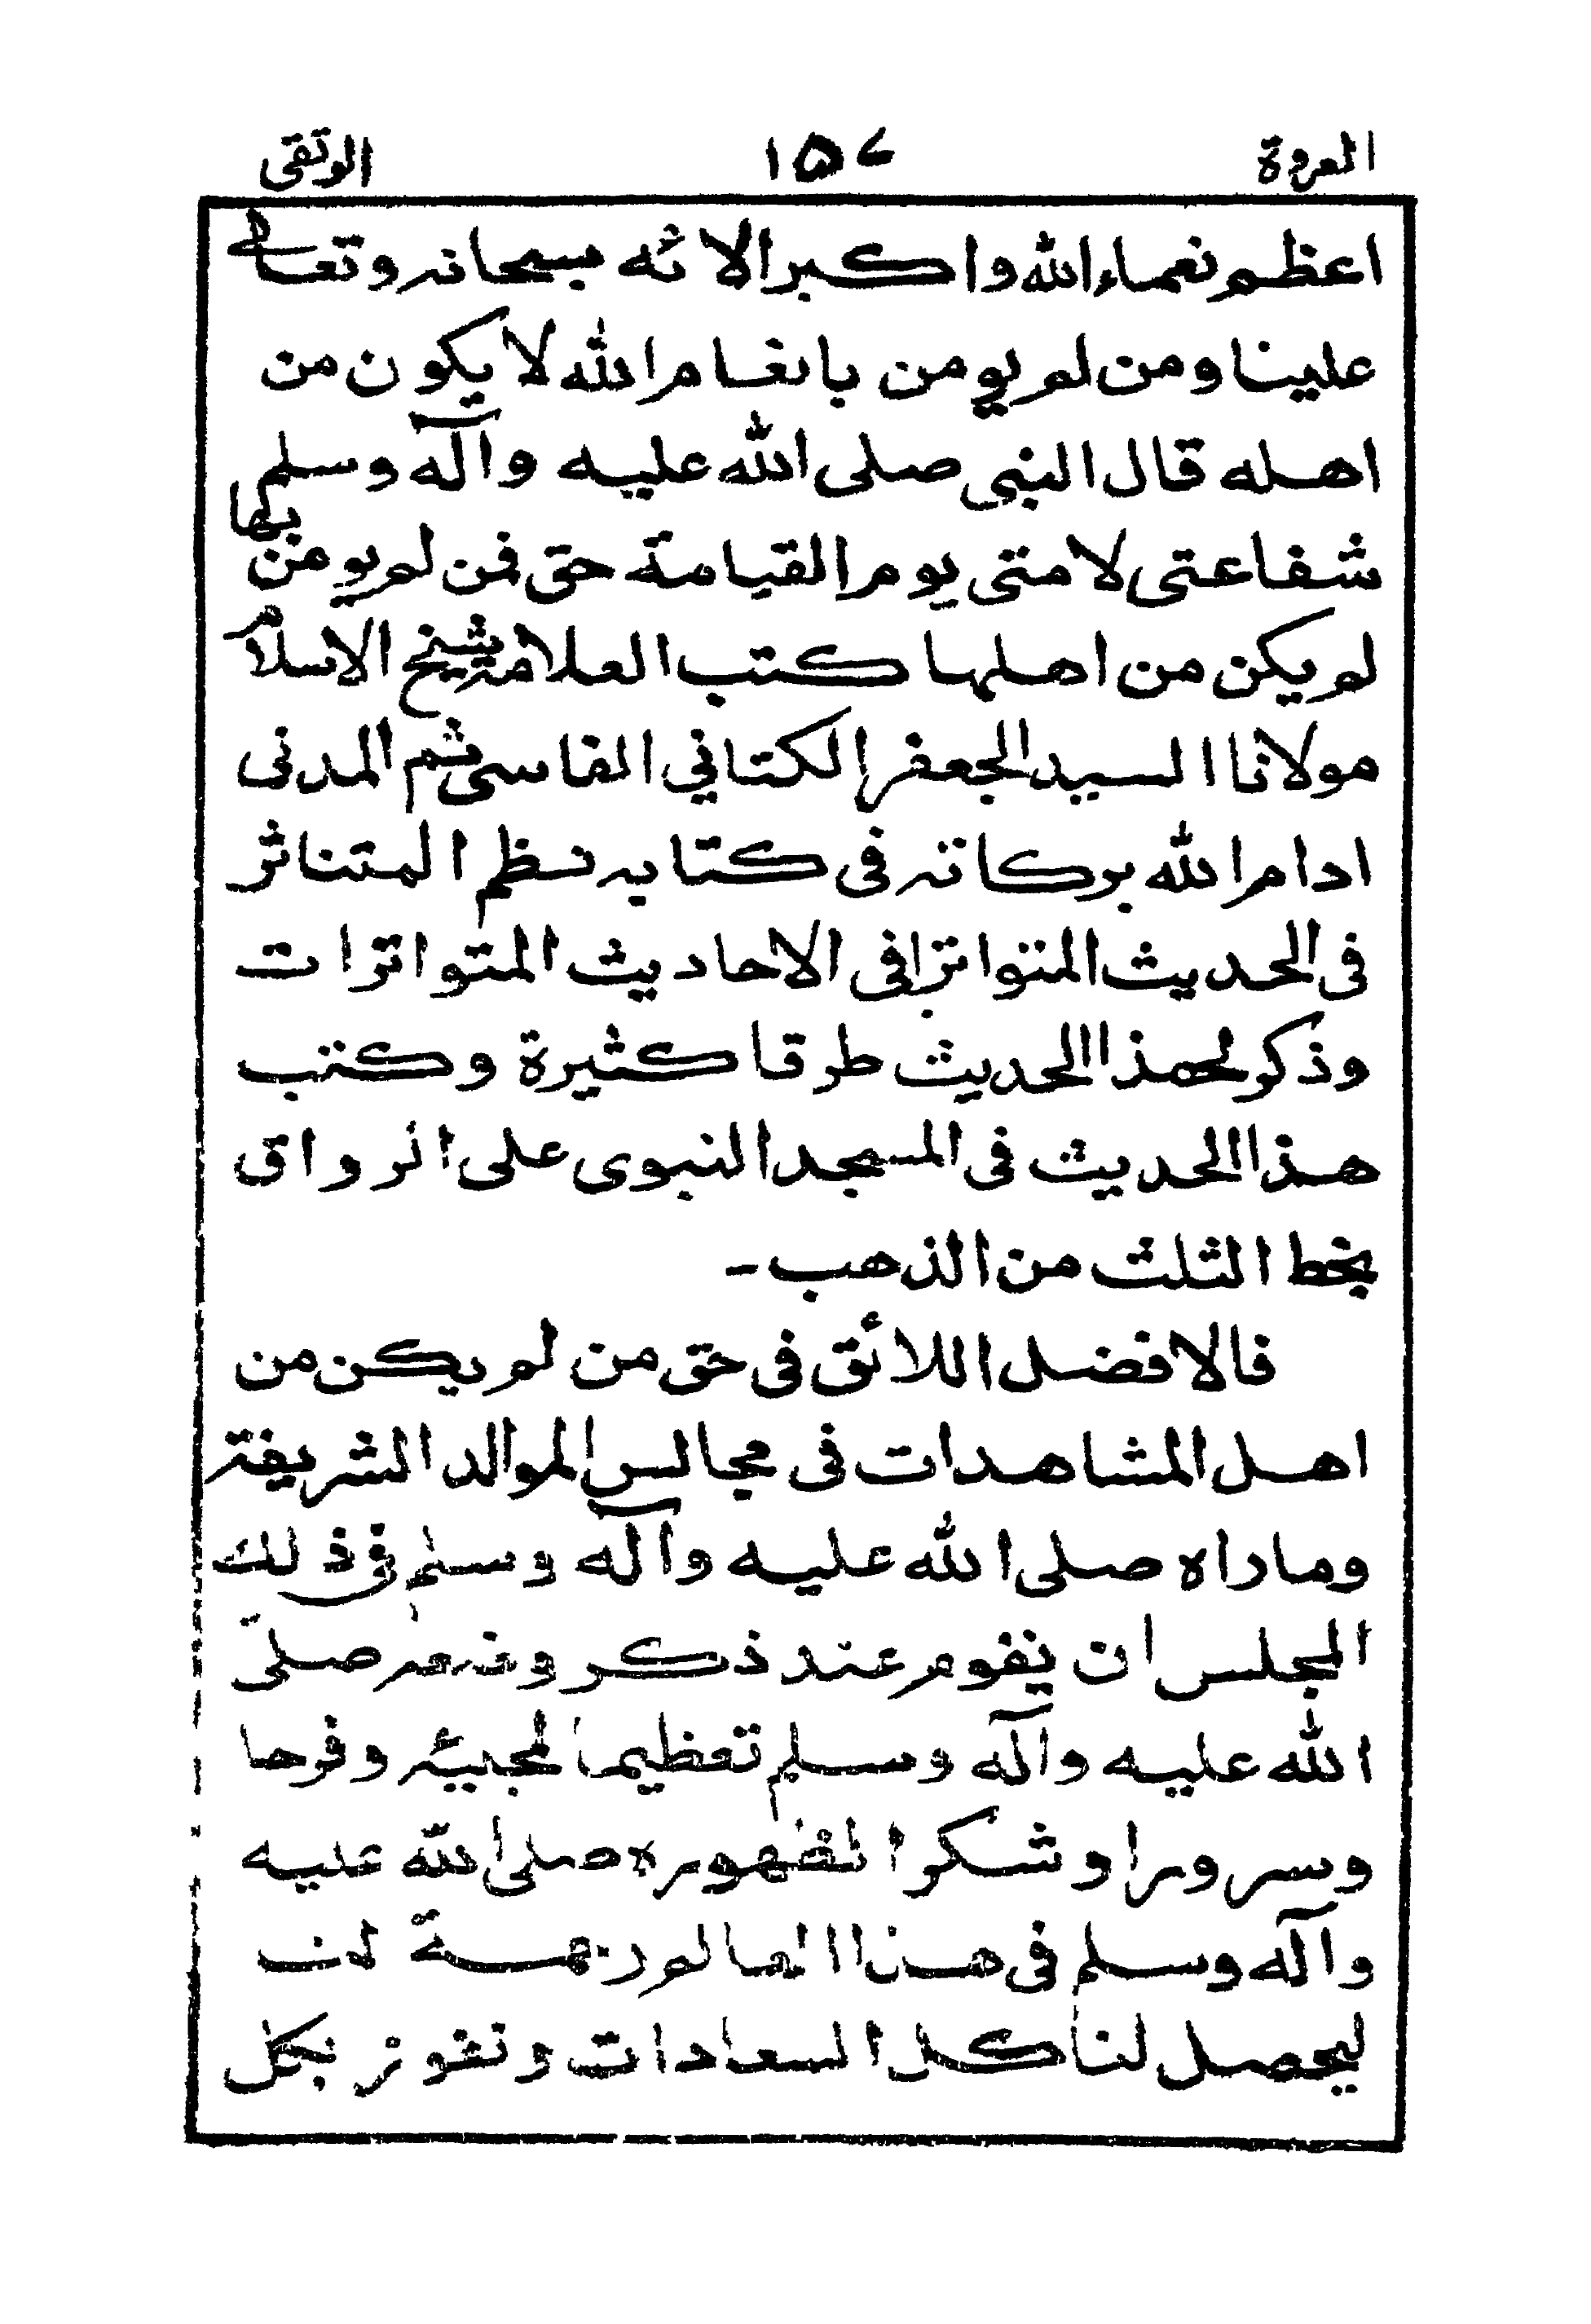 العروة ١٥٧ الوثقى
اعظم نعماء الله واكبر الائه سبحانه وتعالى
علينا ومن لم يومن بانعام الله لا يكون من
اهله قال النبى صلى الله عليه وآله وسلم
شفاعتى لامتى يوم القيامة حق فمن لم يومن بها
لم يكن من اهلها كتب العلامة شيخ الاسلام
مولانا السيد الجعفر الكتاني الفاسى ثم المدنى
ادام الله بركاته فى كتابه نظم المتناثر
فى الحديث المتواترا فى الاحاديث المتواترات
وذكر لهذا الحديث طرقا كثيرة وكتب
هذا الحديث فى المسجد النبوى على الرواق
بخط الثلث من الذهب -
فالافضل اللائق فى حق من لم يكن من
اهل المشاهدات فى مجالس الموالد الشريفة
وماراه صلى الله عليه وآله وسلم فى ذلك
المجلس ان يقوم عند ذكر وضعه صلى
الله عليه وآله وسلم تعظيما لمجيئه وفرحا
وسرورا وشكرا لظهوره صلى الله عليه
وآله وسلم فى هذا العالم رحمة لنا
ليحصل لنا كل السعادات ونفوز بكل